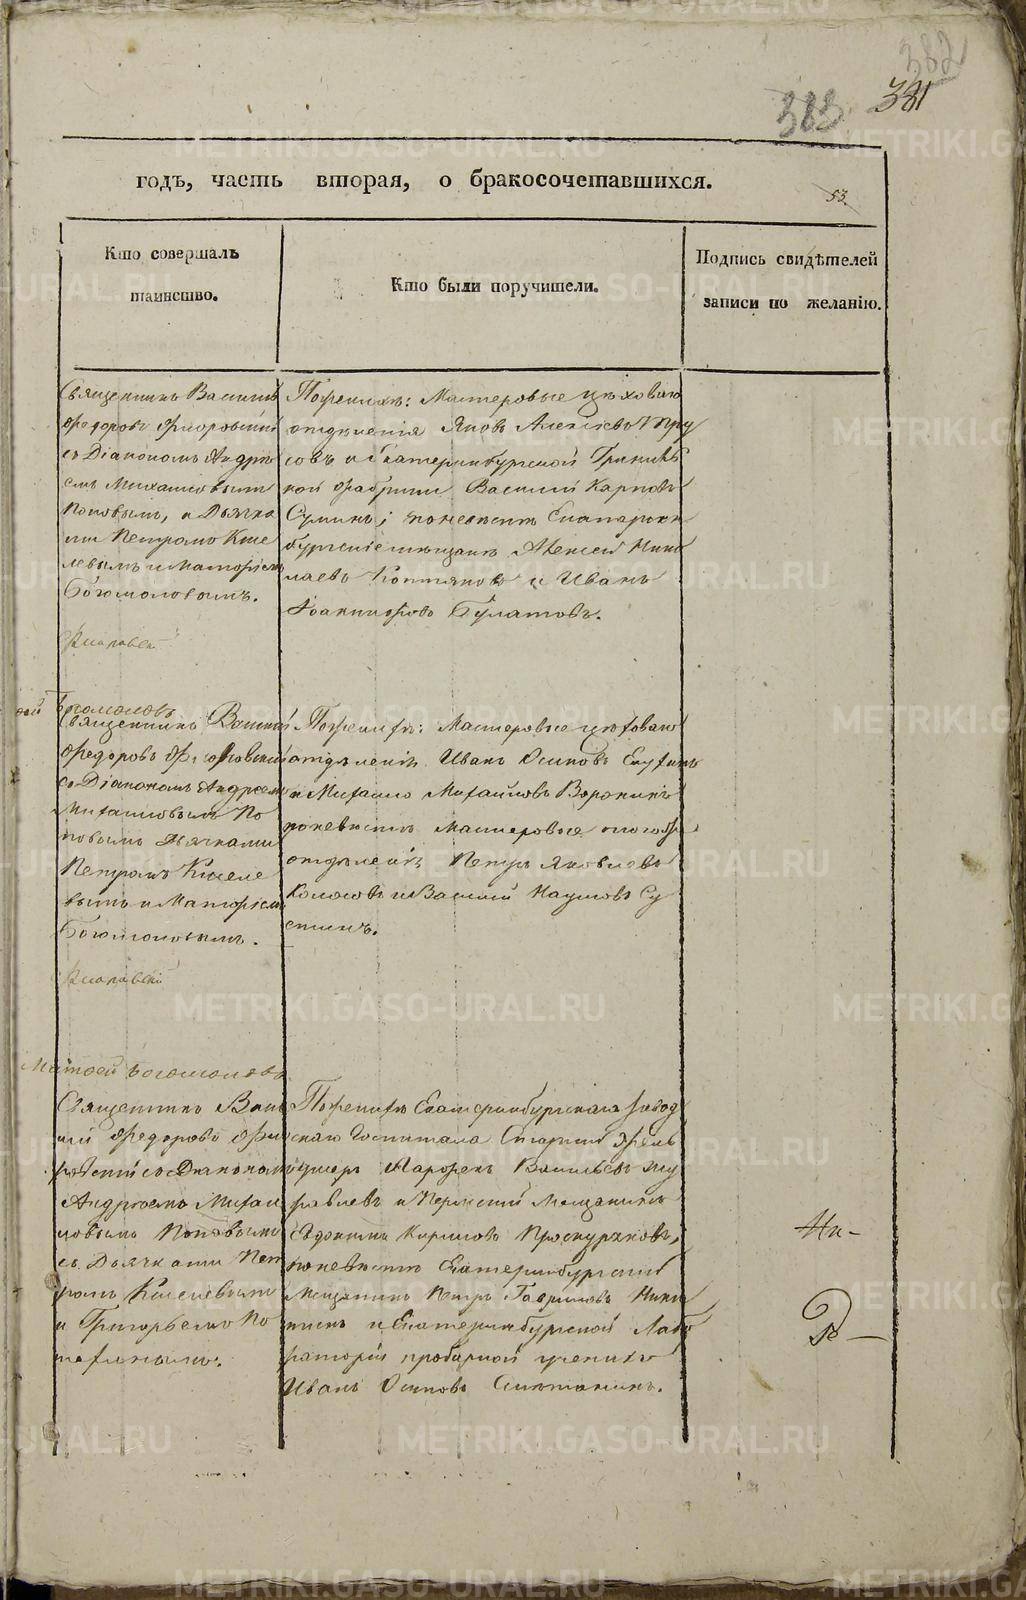 382
383 381
годъ, часть вторая, о бракосочетавшихся.
53.
Кто совершалъ
таинство.
Кто были поручители.
Подпись свидѣтелей
записи по желанію.
Священникъ Василій
Федоровъ Флоровскій
съ Діакономъ Андре
емъ Михайловымъ
Поповымъ, и Дьячка
ми Петромъ Кисе
левымъ и Матѳіемъ
Богомоловымъ.
Флоровскій
Богомоловъ
По женихѣ: Мастеровые цѣховаго
отдѣленія Яковъ Алексѣевъ
и Екатеринбургской Граниль
ной фабрики Василій Карповъ
Суминъ; по невѣстѣ Екатерин
бургскіе мѣщане Алексей Нико
лаевъ Коптяковъ и Иванъ
Булатовъ.
Священникъ Василій
Федоровъ Флоровскій
съ Діакономъ Андреемъ
Михайловымъ По
повымъ Дьячками
Петромъ Киселе
вымъ и Матѳіемъ
Богомоловымъ.
Флоровскій
Матѳей Богомоловъ
По женихѣ: Мастеровые цѣховаго
отдѣленія Иванъ Осиповъ
и Михайло Михайловъ Воронинъ
по невѣстѣ мастеровые тогожъ
отдѣленія Петръ Яковлевъ
Колосовъ и Василій Наумовъ Су
Священникъ Васи
лій Федоровъ Фло
ровскій съ Діакономъ
Андреемъ Михай
ловымъ Поповымъ
съ Дьячками Пет
ромъ Киселевымъ
и Григорьемъ По
По женихѣ Екатеринбургскаго завод
скаго Госпиталя Старшій Фель
дшеръ Ларіонъ Васильевъ Жу
равлевъ и Пермскій Мещанинъ
Евдокимъ Кириловъ Проскуряковъ,
по невѣстѣ Екатеринбургскій
Мещанинъ Петръ Гавриловъ Ники
тинъ и Екатеринбургской Лабо
раторіи пробирной ученикъ
Иванъ Осиповъ Сметанинъ.
METRIKI.GASO-URAL.RU